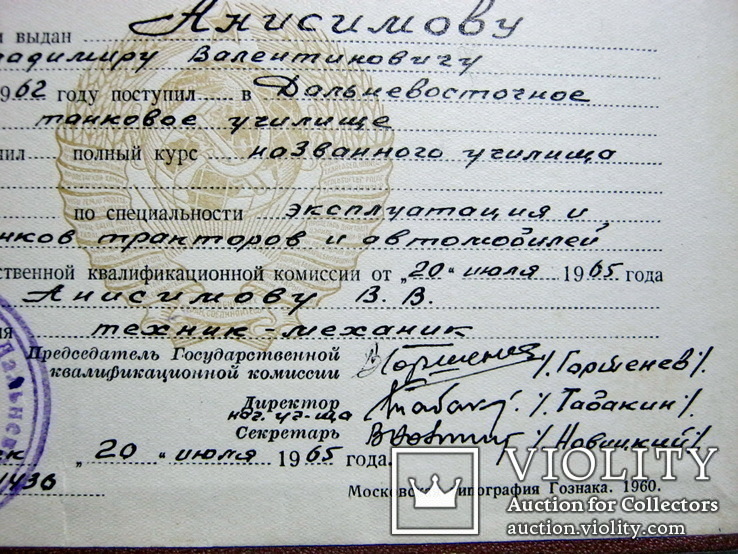 и выдан Анисимову
адимиру Валентиновичу
962 году поступил в Дальневосточное
танковое училище
чил полный курс названного училища
по специальности эксплуатация и
нков тракторов и автомобилей
ственной квалификационной комиссии от „20“ июля 1965 года
Анисимову В. В.
ия техник-механик
Председатель Государственной
квалификационной комиссии /Горшенев/.
Директор /. Табакин/.
нач. уч-ща
Секретарь /. Новицкий/.
„20“ июля 1965 года.
1436
Московская типография Гознака. 1960.
VIOLITY
Auction for Collectors
auction.violity.com